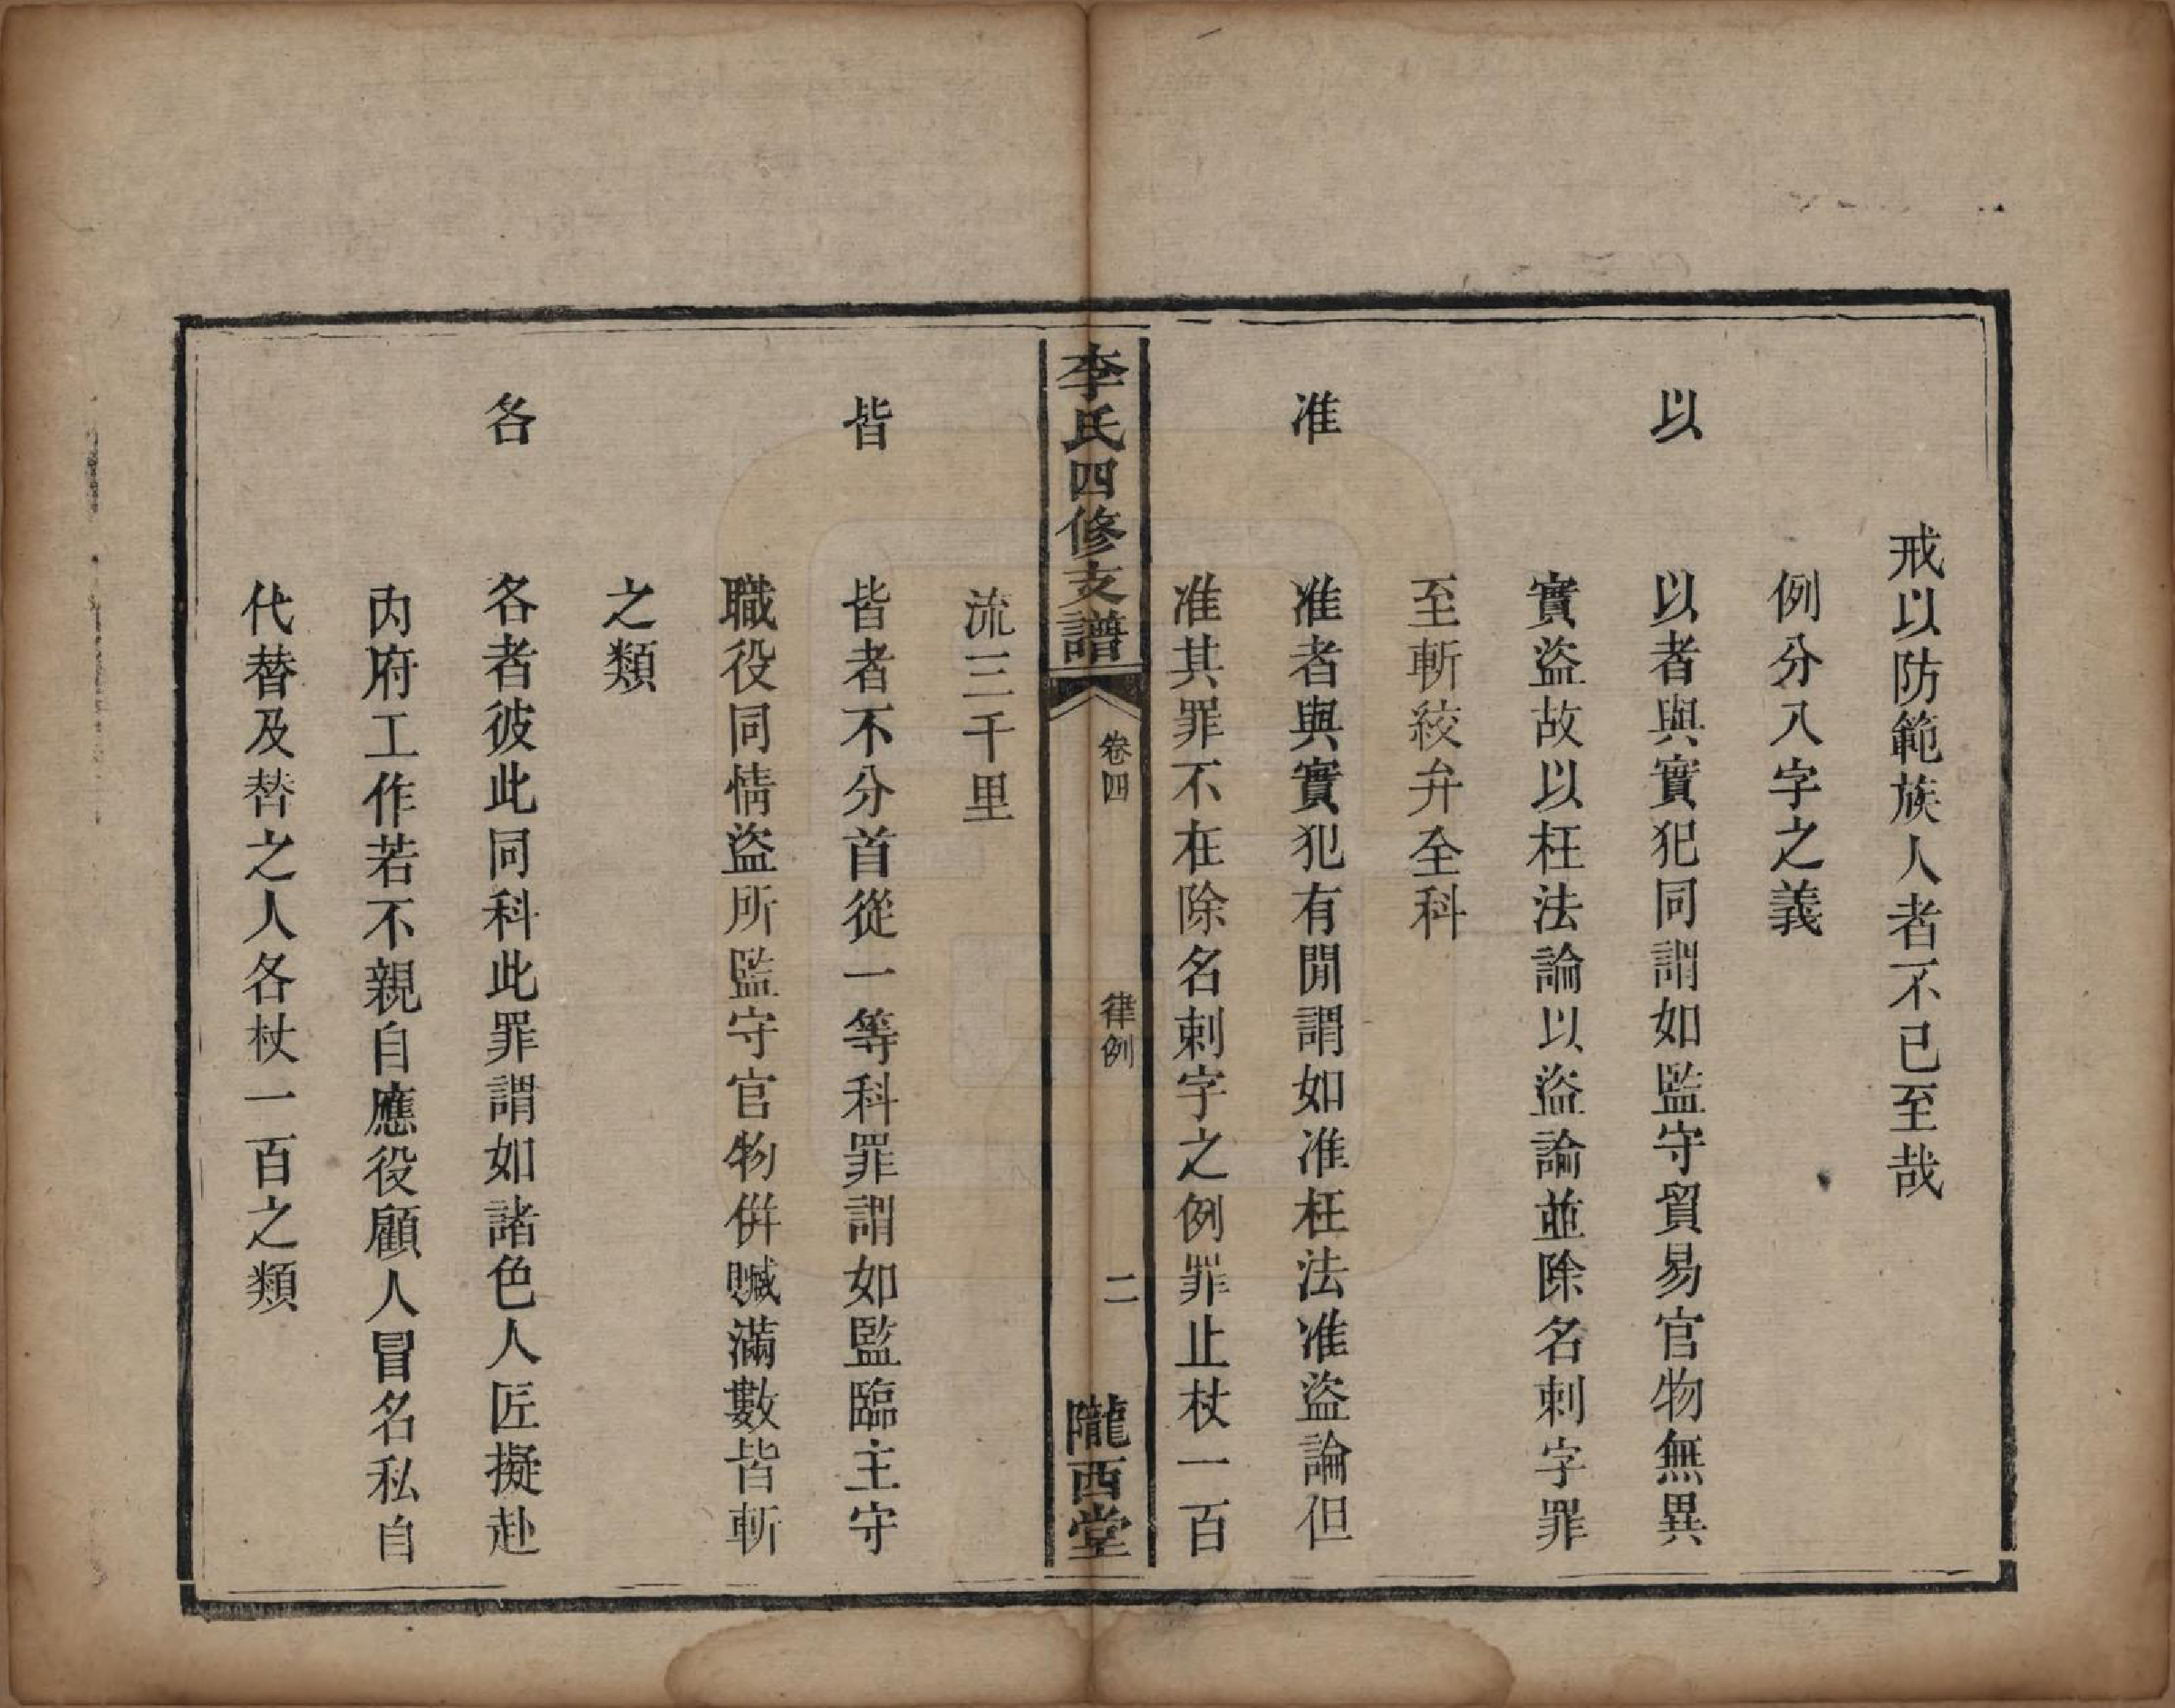 戒以防範族人者不已至哉
例分八字之義
以　以者與實犯同謂如監守貿易官物無異
實盜故以枉法論以盜論並除名刺字罪
至斬絞弁全科
准　准者與實犯有閒謂如准枉法准盜論但
准其罪不在除名刺字之例罪止杖一百
李氏四修支譜　卷四　律例　二　隴西堂
流三千里
皆　皆者不分首從一等科罪謂如監臨主守
職役同情盜所監守官物併贓滿數皆斬
之類
各　各者彼此同科此罪謂如諸色人匠擬赴
內府工作若不親自應役顧人冒名私自
代替及替之人各杖一百之類